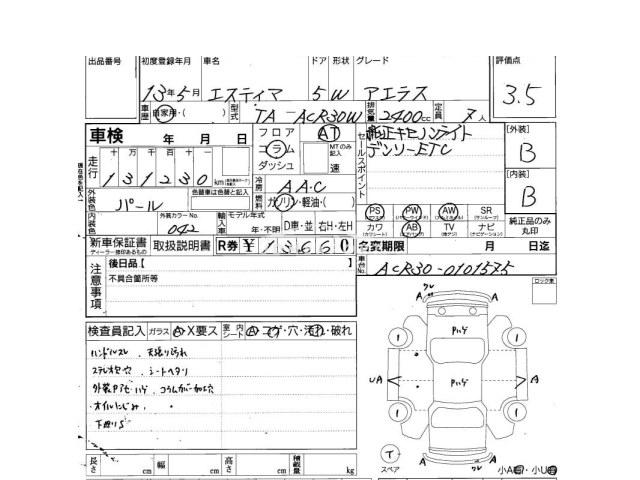 出品番号 初度登録年月 車名 ドア 形状 グレード 評価点
13年5月 エスティマ 5W アエラス 3.5
車歴 自家用・( ) 型式 TA-ACR30W 排気量 2400cc 定員 7人
車検 年 月 日
フロア AT
コラム MTのみ記入
ダッシュ 速
セールスポイント 純正キセノンライト
デンソーETC
[外装] B
[内装] B
走行 十万千百十
131230 km
冷房 AAC
外装色 パール 色替車は色替と記入
燃料 ガソリン・軽油・( )
内装色 外装カラーNo. 042
輸入車 モデル年式 年・不明 D車・並 右H・左H
PS PW AW SR
(パワーウインドウ) (サンルーフ)
カワ AB TV ナビ
(カワシート) (エアバッグ) (ナビゲーション)
純正品のみ丸印
新車保証書 取扱説明書 R券 ¥13660 名変期限 月 日迄
ディーラー捺印あるもの
車台No. ACR30-0101575
ロック車
注意事項
後日品【 】
不具合箇所等
検査員記入 ガラス A・X要ス 室内シート コゲ・穴・汚れ・破れ
ハンドルスレ、天張り汚れ
ステレオ上穴、シートヘタリ
コラムカバー加工穴
オイルにじみ、
下廻りS
長さ cm 幅 cm 高さ cm 積載量 kg
A
1 1
UA A
1 1
スペア
A A
小A 小U